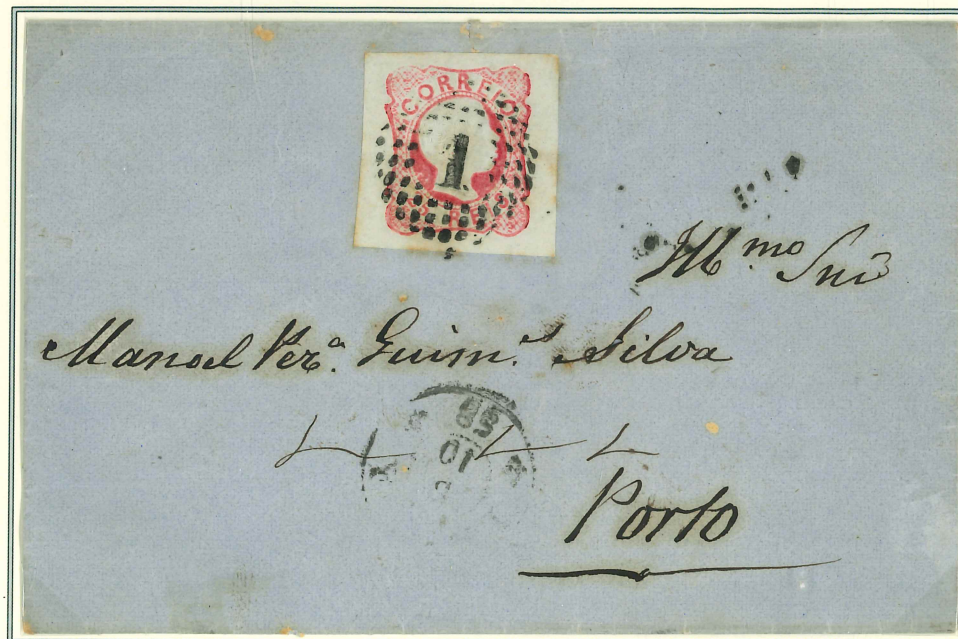 CORREIO
1
Ill.mo Snr
Manoel Per.a Guim.es Silva
10
Porto